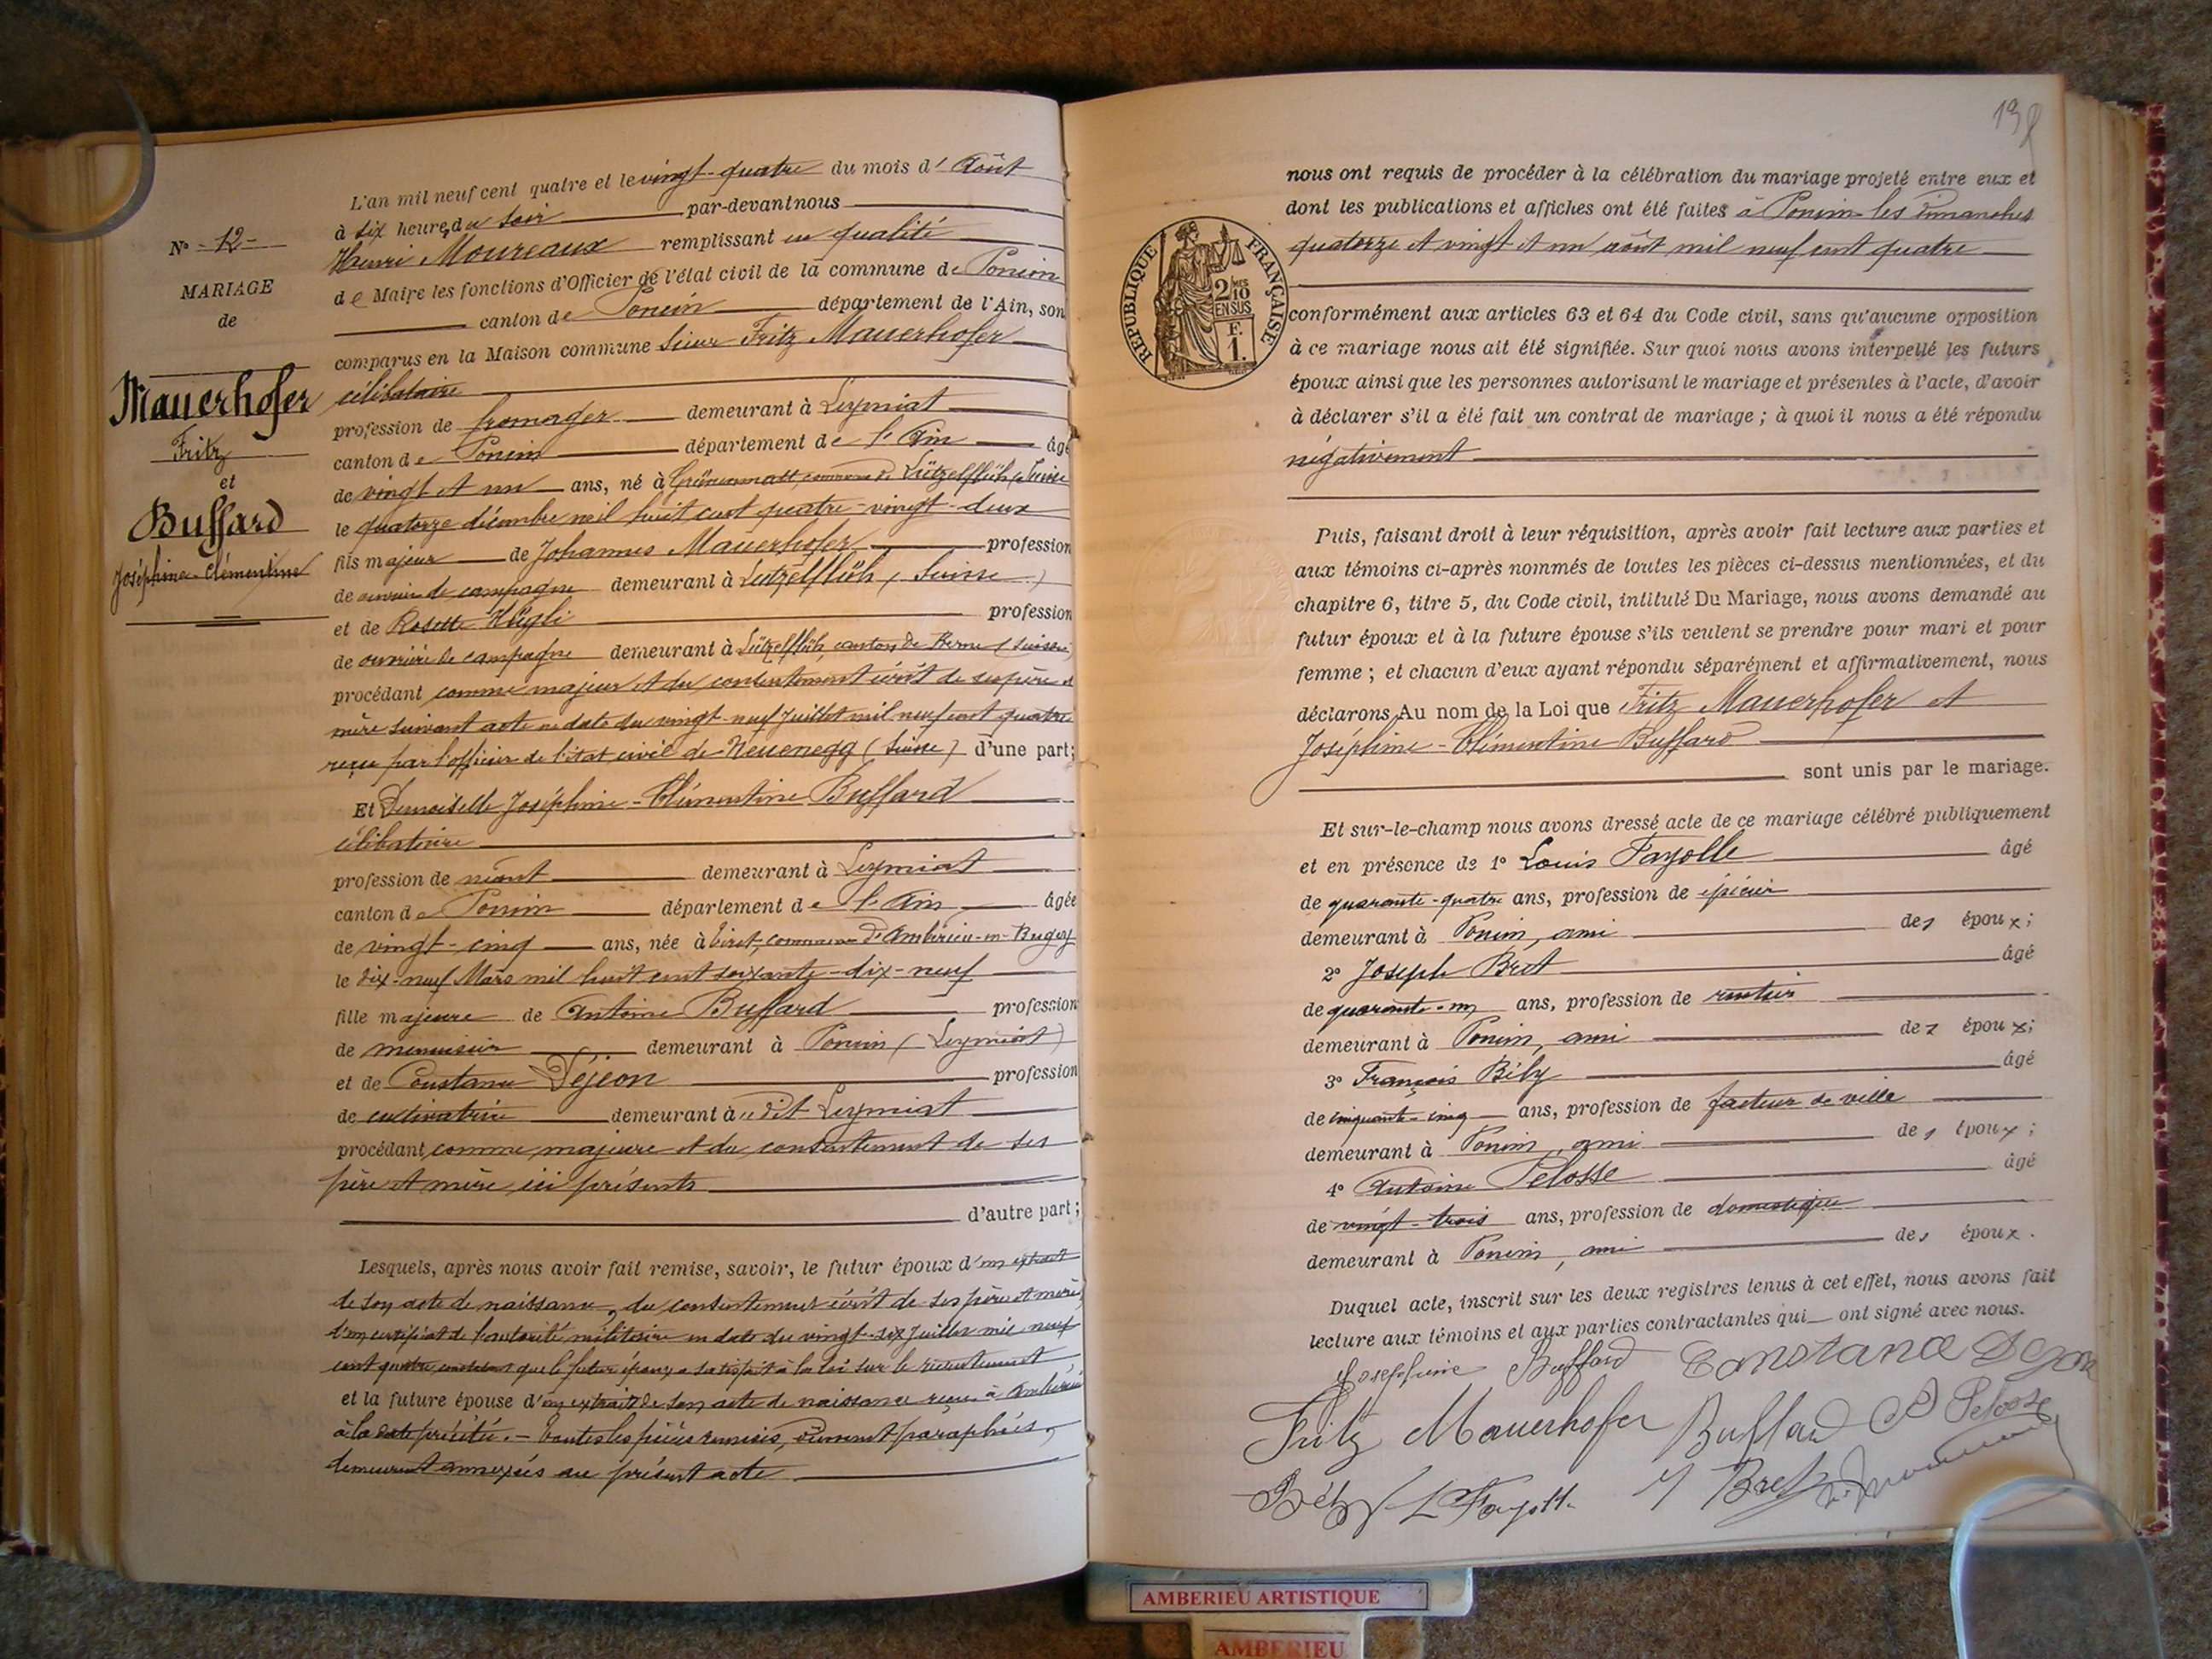 L'an mil neuf cent quatre et le vingt-quatre du mois d'Août
à six heures du soir par-devant nous
Henri Moureaux remplissant en qualité
de Maire les fonctions d'Officier de l'état civil de la commune de Poncin
canton de Poncin département de l'Ain, son
comparus en la Maison commune sieur Fritz Mauerhofer
célibataire
profession de fromager demeurant à Leymiat
canton de Poncin département de l'Ain âgé
de vingt et un ans, né à commune de Lützelflüh (Suisse
le quatorze décembre mil huit cent quatre-vingt-deux
fils majeur de Johannes Mauerhofer profession
de ouvrier de campagne demeurant à Lutzelflüh (Suisse)
et de Rosette Hügli profession
de ouvrière de campagne demeurant à Lützelflüh, canton de Berne (Suisse)
procédant comme majeur et du consentement écrit de ses père et
mère suivant acte en date du vingt-neuf Juillet mil neuf cent quatre
reçu par l'officier de l'état civil de Neuenegg (Suisse) d'une part;
Et Demoiselle Joséphine-Clémentine Buffard
célibataire
profession de néant demeurant à Leymiat
canton de Poncin département de l'Ain âgée
de vingt-cinq ans, née à Tiret, commune d'Ambérieu-en-Bugey
le dix-neuf Mars mil huit cent soixante-dix-neuf
fille majeure de Antoine Buffard profession
de menuisier demeurant à Poncin (Leymiat)
et de Constance Déjeon profession
de cultivatrice demeurant à dit Leymiat
procédant comme majeure et du consentement de ses
père et mère ici présents
d'autre part;
Lesquels, après nous avoir fait remise, savoir, le futur époux d'un extrait
de son acte de naissance, du consentement écrit de ses père et mère,
d'un certificat de l'autorité militaire en date du vingt-six Juillet mil neuf
cent quatre constatant que le futur époux a satisfait à la loi sur le recrutement
et la future épouse d'un extrait de son acte de naissance reçu à Ambérieu
à la date précitée. - Toutes les pièces remises, dûment paraphées,
demeurent annexées au présent acte
N° -12-
MARIAGE
de
Mauerhofer
Fritz
et
Buffard
Joséphine-Clémentine
nous ont requis de procéder à la célébration du mariage projeté entre eux et
dont les publications et affiches ont été faites à Poncin les Dimanches
quatorze et vingt et un août mil neuf cent quatre
RÉPUBLIQUE FRANÇAISE
2/10
EN SUS
F.
1.
conformément aux articles 63 et 64 du Code civil, sans qu'aucune opposition
à ce mariage nous ait été signifiée. Sur quoi nous avons interpellé les futurs
époux ainsi que les personnes autorisant le mariage et présentes à l'acte, d'avoir
à déclarer s'il a été fait un contrat de mariage ; à quoi il nous a été répondu
négativement
Puis, faisant droit à leur réquisition, après avoir fait lecture aux parties et
aux témoins ci-après nommés de toutes les pièces ci-dessus mentionnées, et du
chapitre 6, titre 5, du Code civil, intitulé Du Mariage, nous avons demandé au
futur époux et à la future épouse s'ils veulent se prendre pour mari et pour
femme ; et chacun d'eux ayant répondu séparément et affirmativement, nous
déclarons Au nom de la Loi que Fritz Mauerhofer et
Joséphine-Clémentine Buffard
sont unis par le mariage.
Et sur-le-champ nous avons dressé acte de ce mariage célébré publiquement
et en présence de 1° Louis Fayolle âgé
de quarante-quatre ans, profession de épicier
demeurant à Poncin, ami des époux;
2° Joseph Bret âgé
de quarante-un ans, profession de rentier
demeurant à Poncin, ami des époux;
3° François Béby âgé
de cinquante-cinq ans, profession de facteur de ville
demeurant à Poncin, ami des époux;
4° Antoine Pelosse âgé
de vingt-trois ans, profession de domestique
demeurant à Poncin, ami des époux.
Duquel acte, inscrit sur les deux registres tenus à cet effet, nous avons fait
lecture aux témoins et aux parties contractantes qui ont signé avec nous.
Josephine Buffard Constance Dejon
Fritz Mauerhofer Buffard A Pelosse
Béby L Fayolle J Bret
AMBERIEU ARTISTIQUE
AMBERIEU